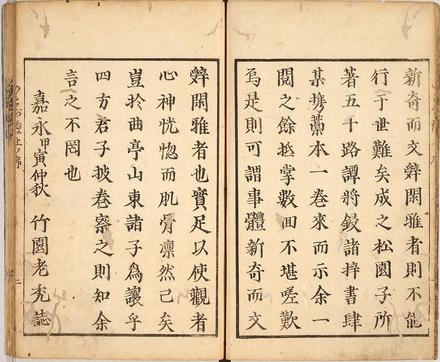 新奇而文辤閑雅者則不能
行于世難矣成之松園子所
著五十路譚将鋟諸梓書肆
某携藁本一卷來而示余一
閲之餘抵掌數囬不堪嗟歎
焉是則可謂事體新奇而文
辤閑雅者也實足以使觀者
心神恍惚而肌骨凛然已矣
豈於曲亭山東諸子為讓乎
四方君子披卷察之則知余
言之不罔也
嘉永甲寅仲秋 竹園老禿誌